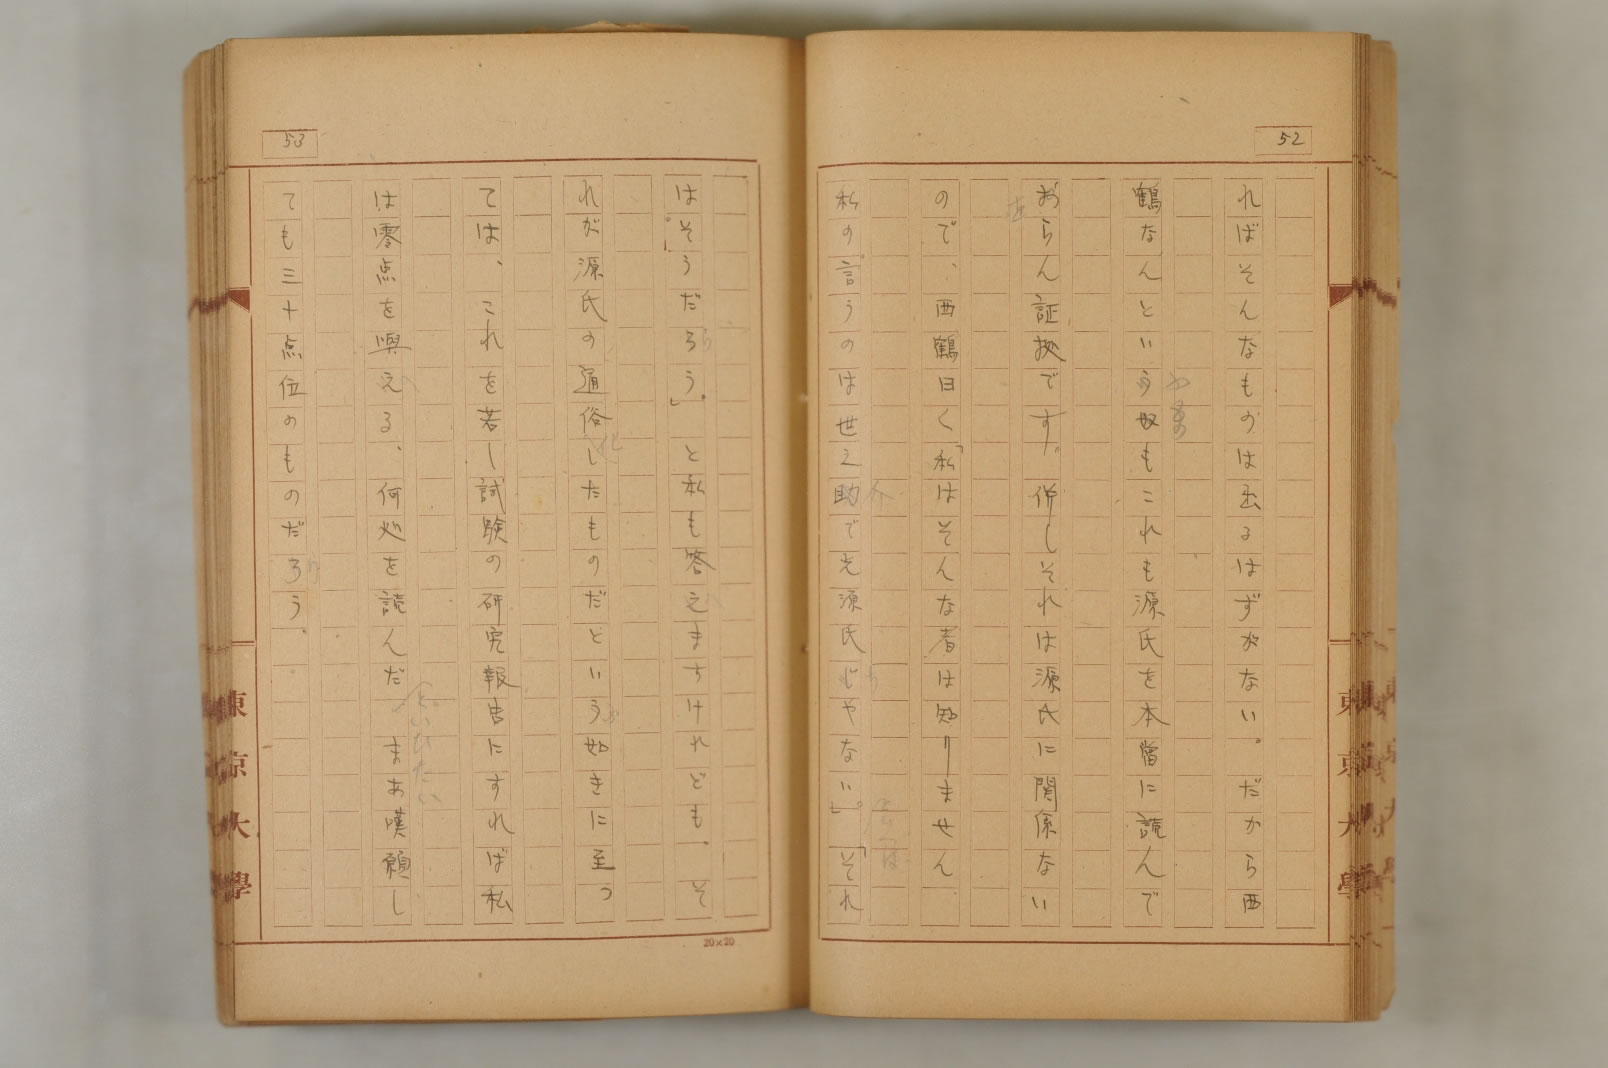 52
ればそんなものは出るはずがない。だから西
鶴なんという奴もこれも源氏を本當に読んで
おらん証拠です。併しそれは源氏に関係ない
ので、西鶴曰く「私はそんな者は知りません
私の言うのは世之助で光源氏じやない」。「それ
53
はそうだろう。」と私も答えましたけれども。そ
れが源氏の通俗したものだという如きに至つ
ては、これを若し試験の研究報告にすれば私
は零点を與える、何処を読んだ まあ嘆願し
ても三十点位のものだろう。
20×20
東京大學
東京大學